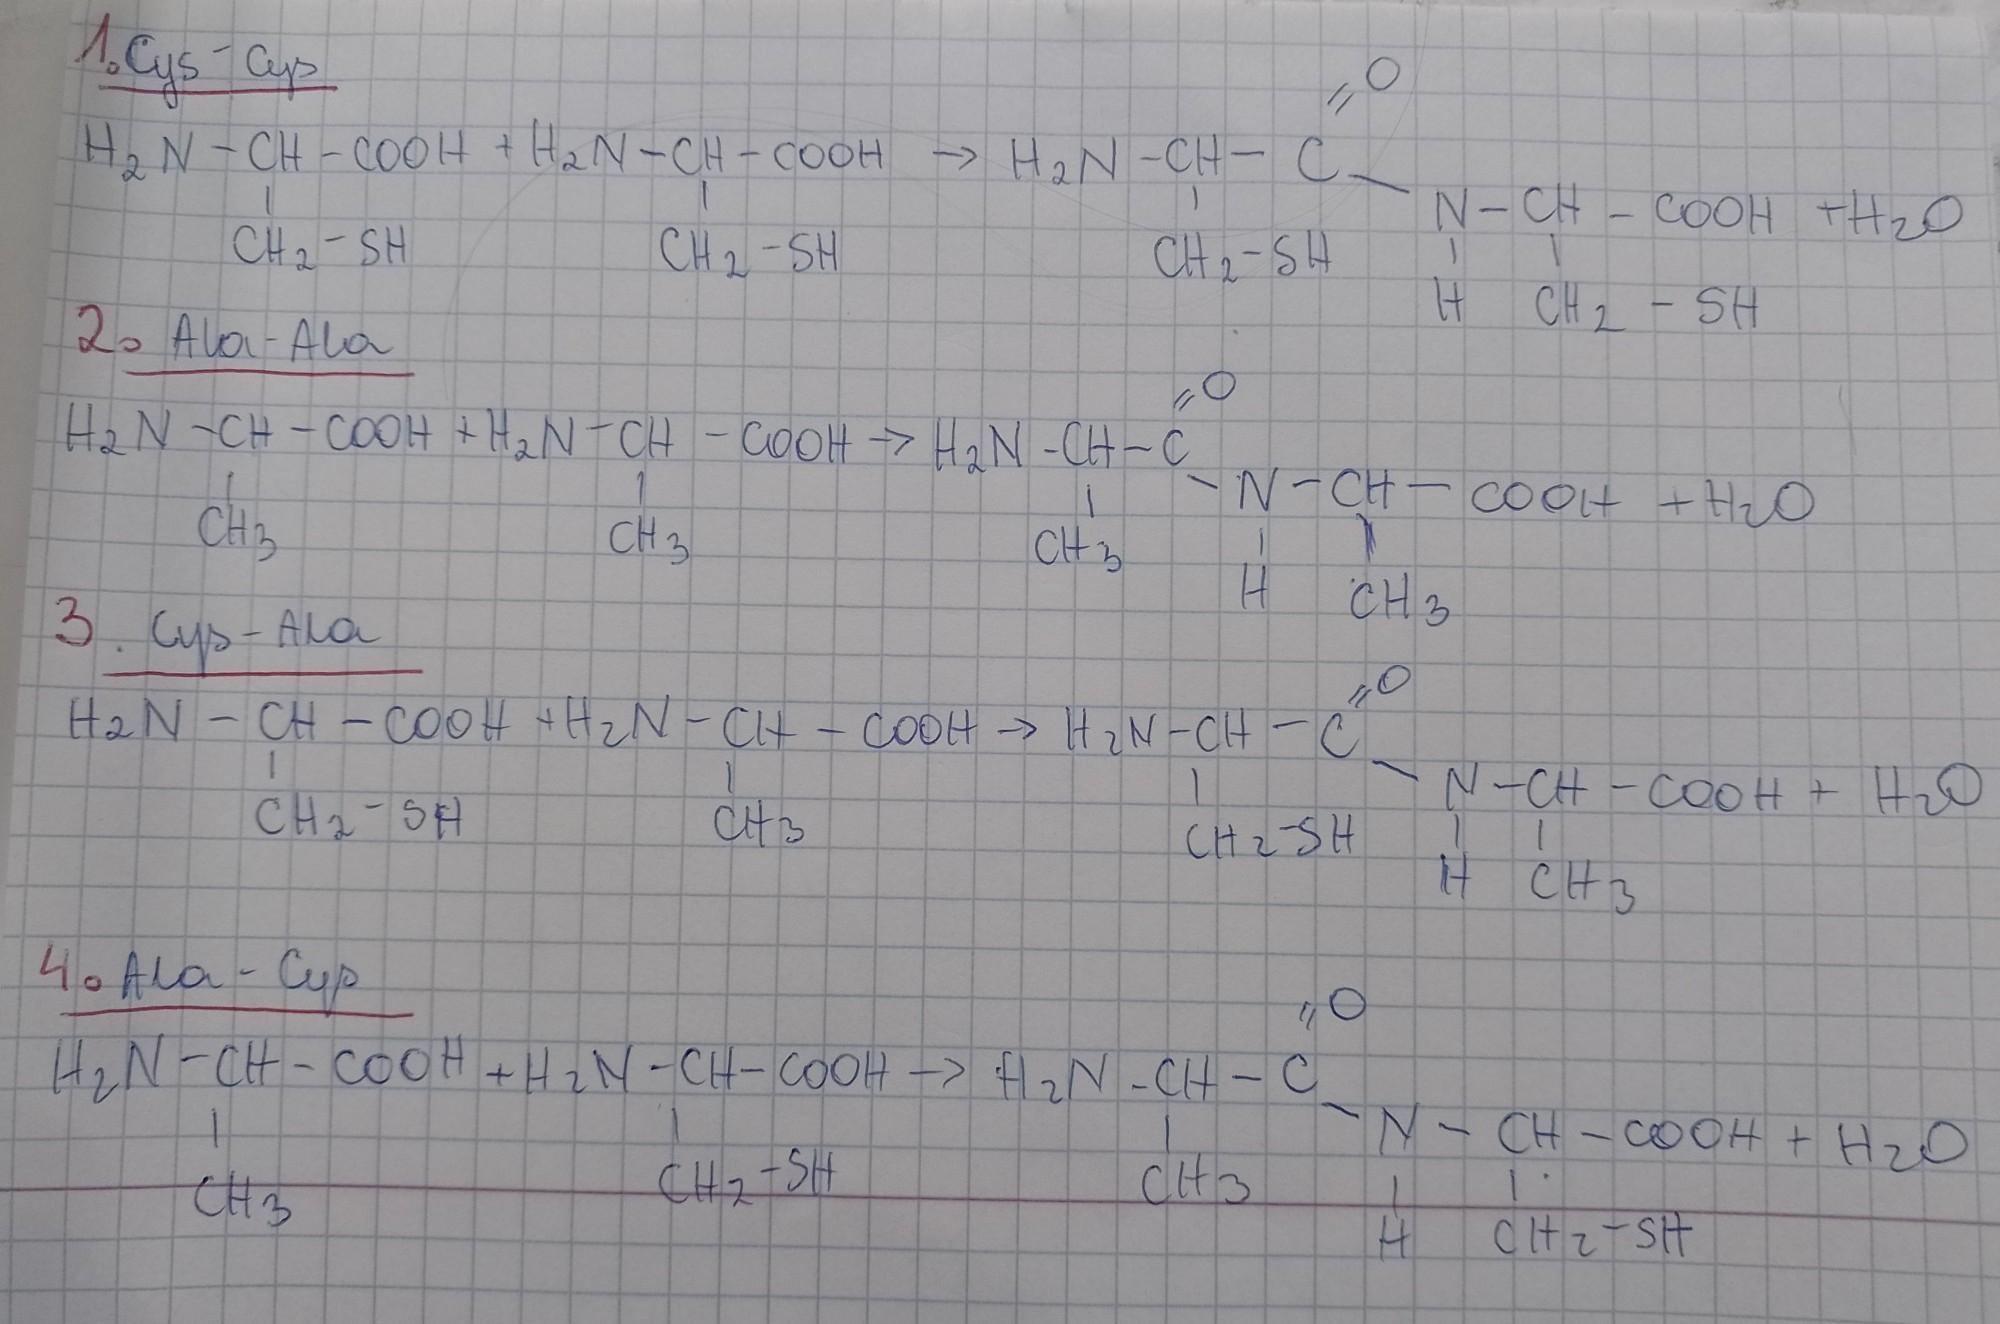 1. Cys-Cys
=O
H2N-CH-COOH + H2N-CH-COOH → H2N-CH-C
N-CH-COOH + H2O
CH2-SH CH2-SH CH2-SH
H CH2-SH
2. Ala-Ala
=O
H2N-CH-COOH + H2N-CH-COOH → H2N-CH-C
N-CH-COOH + H2O
CH3 CH3 CH3
H CH3
3. Cys-Ala
=O
H2N-CH-COOH + H2N-CH-COOH → H2N-CH-C
N-CH-COOH + H2O
CH2-SH CH3 CH2-SH
H CH3
4. Ala-Cys
=O
H2N-CH-COOH + H2N-CH-COOH → H2N-CH-C
N-CH-COOH + H2O
CH3 CH2-SH CH3
H CH2-SH